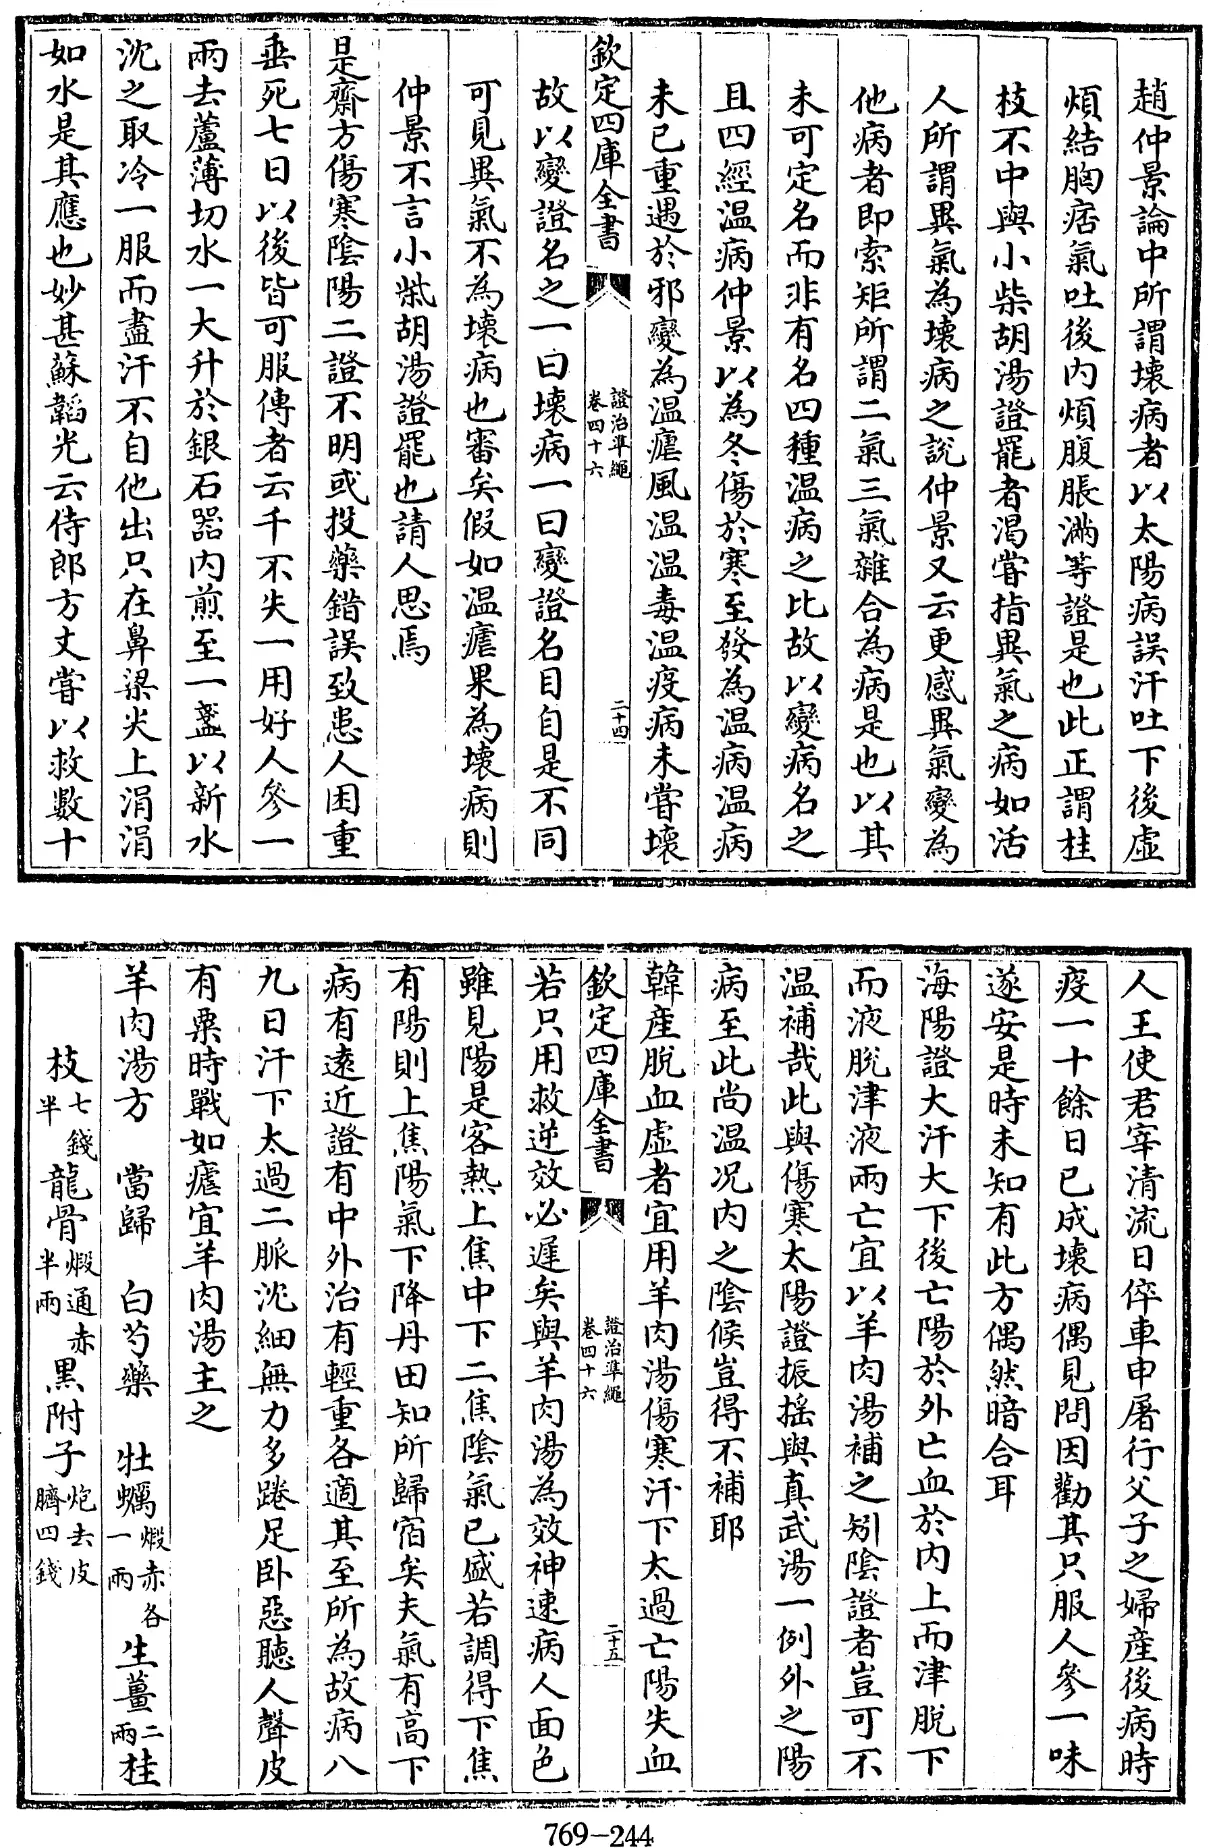 趙仲景論中所謂壞病者以太陽病誤汗吐下後虛
煩結胸痞氣吐後内煩腹脹滿等證是也此正謂桂
枝不中與小柴胡湯證罷者渴嘗指異氣之病如活
人所謂異氣為壞病之說仲景又云更感異氣變為
他病者即索矩所謂二氣三氣雜合為病是也以其
未可定名而非有名四種温病之比故以變病名之
且四經温病仲景以為冬傷於寒至發為温病温病
未已重遇於邪變為温瘧風温温毒温疫病未嘗壞
欽定四庫全書
證治準繩
卷四十六
二十四
故以變證名之一曰壞病一曰變證名目自是不同
可見異氣不為壞病也審矣假如温瘧果為壞病則
仲景不言小柴胡湯證罷也請人思焉
是齋方傷寒陰陽二證不明或投藥錯誤致患人困重
垂死七日以後皆可服傳者云千不失一用好人參一
兩去蘆薄切水一大升於銀石器内煎至一盞以新水
沈之取冷一服而盡汗不自他出只在鼻梁尖上涓涓
如水是其應也妙甚蘇韜光云侍郎方丈嘗以救數十
人王使君宰清流日倅車申屠行父子之婦產後病時
疫一十餘日已成壞病偶見問因勸其只服人參一味
遂安是時未知有此方偶然暗合耳
海陽證大汗大下後亡陽於外亡血於内上而津脫下
而液脫津液兩亡宜以羊肉湯補之矧陰證者豈可不
温補哉此與傷寒太陽證振搖與真武湯一例外之陽
病至此尚温况内之陰候豈得不補耶
韓產脫血虛者宜用羊肉湯傷寒汗下太過亡陽失血
欽定四庫全書
證治準繩
卷四十六
二十五
若只用救逆效必遲矣與羊肉湯為效神速病人面色
雖見陽是客熱上焦中下二焦陰氣已盛若調得下焦
有陽則上焦陽氣下降丹田知所歸宿矣夫氣有高下
病有遠近證有中外治有輕重各適其至所為故病八
九日汗下太過二脈沈細無力多踡足卧惡聽人聲皮
有粟時戰如瘧宜羊肉湯主之
羊肉湯方 當歸 白芍藥 牡蠣煆赤各一兩 生薑二兩 桂
枝七錢半 龍骨煆通赤半兩 黑附子炮去皮臍四錢
769-244